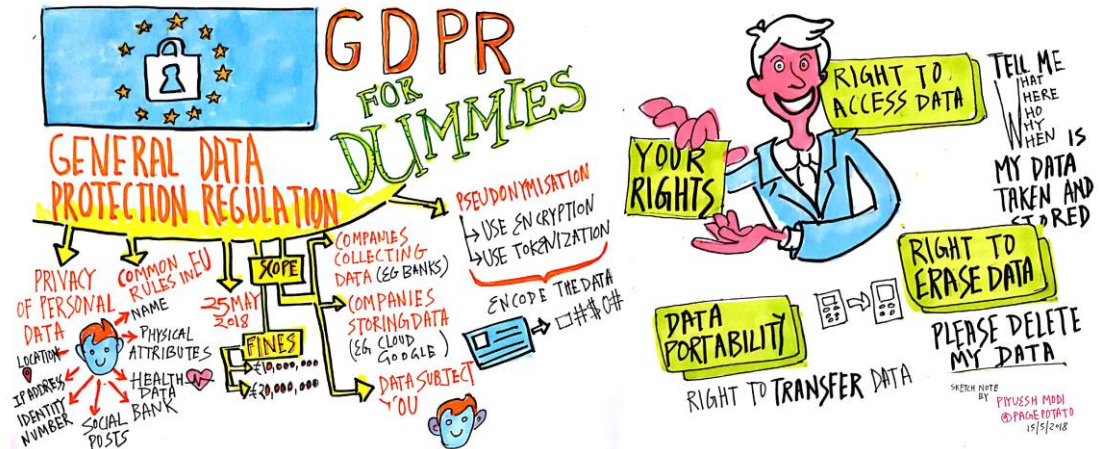 GDPR
FOR
DUMMIES
GENERAL DATA
PROTECTION REGULATION
PRIVACY
OF PERSONAL
DATA
LOCATION
IP ADDRESS
IDENTITY
NUMBER
SOCIAL
POSTS
BANK
HEALTH
DATA
PHYSICAL
ATTRIBUTES
NAME
COMMON
RULES IN EU
25 MAY
2018
SCOPE
FINES
€10,000,000
€20,000,000
COMPANIES
COLLECTING
DATA (EG BANKS)
COMPANIES
STORING DATA
(EG CLOUD
GOOGLE)
DATA SUBJECT
YOU
PSEUDONYMISATION
USE ENCRYPTION
USE TOKENIZATION
ENCODE THE DATA
□#$0#
YOUR
RIGHTS
RIGHT TO
ACCESS DATA
TELL ME
WHAT
WHERE
WHO
WHY
WHEN IS
MY DATA
TAKEN AND
STORED
RIGHT TO
ERASE DATA
PLEASE DELETE
MY DATA
DATA
PORTABILITY
RIGHT TO TRANSFER DATA
SKETCH NOTE
BY PIYUESH MODI
@PAGEPOTATO
15/5/2018